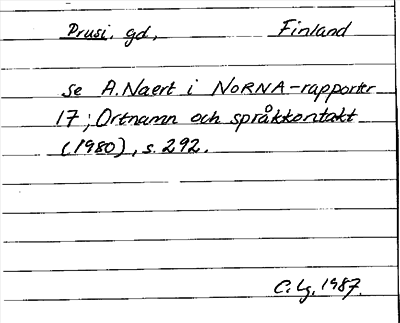 Prusi. gd, Finland
se A. Naert i NORNA-rapporter
17; Ortnamn och språkkontakt
(1980), s. 292.
C. Lg. 1987.